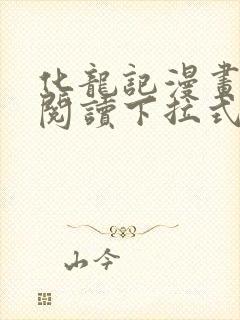 化龍記漫畫
閱讀下拉式
山今